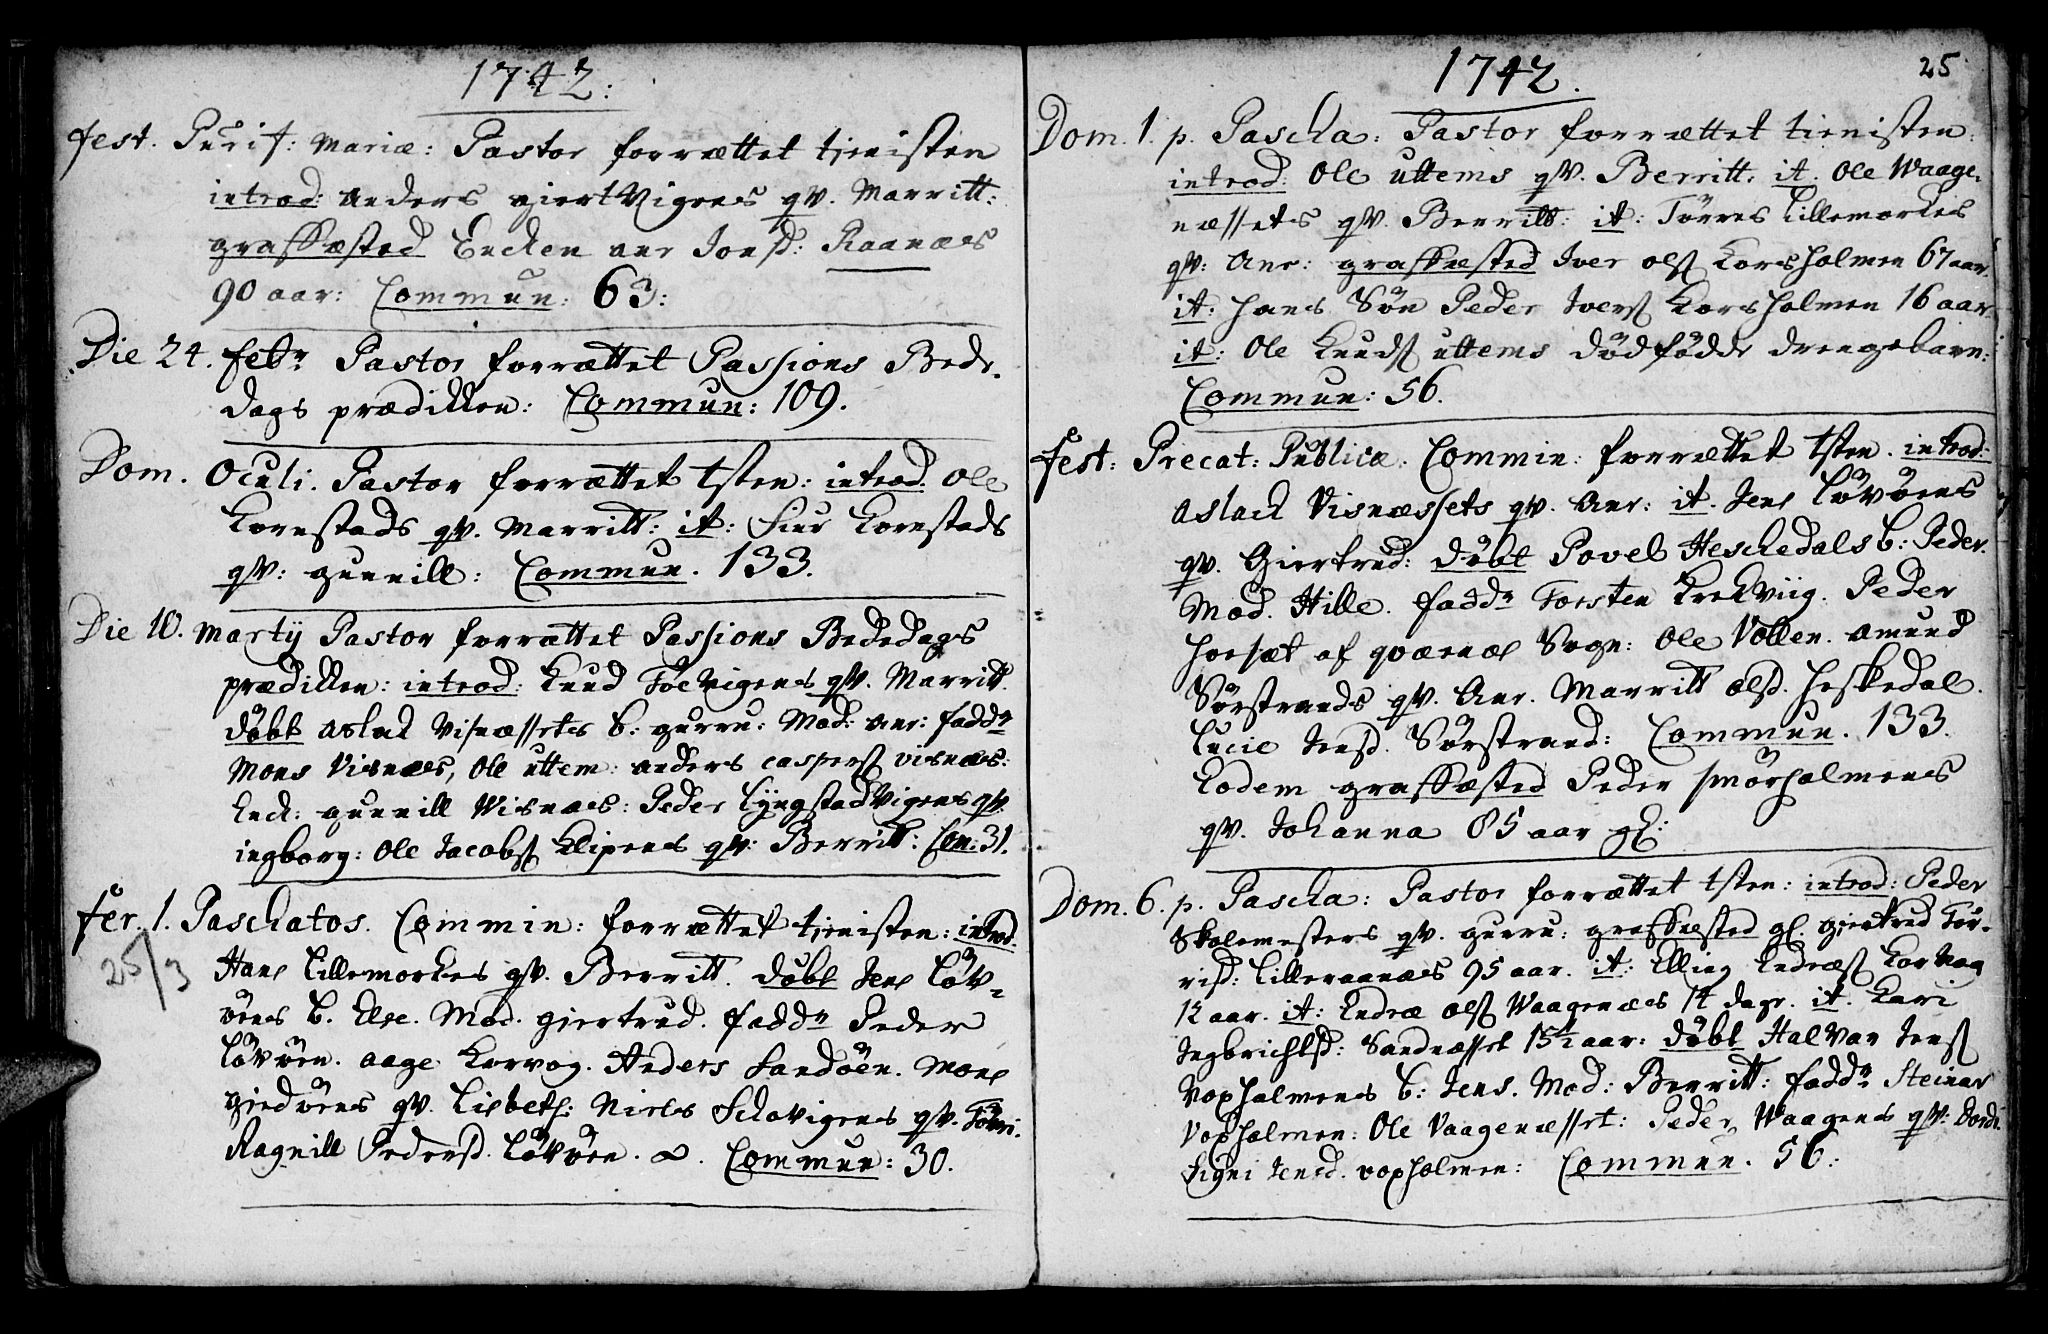 1742:
fest. Purif: Mariæ: Pastor forrættet tjenisten
introd: Anders giertVigens qv. Marritt:
graffæsted Enchen ane Jonsd: Raanæs
90 aar: Commun: 63:
Die 24. febr. Pastor forrættet Passions Bede-
dags prædikken: Commun: 109.
Dom. Oculi. Pastor forrættet tsten: introd. Ole
Kornstads qv. Marritt: it: Siur Kornstads
qv: gunnill: Commun. 133.
Die 10. Martij Pastor forrættet Passions Bededags
prædikken: introd: Knud Foevigens qv. Marritt.
døbt Aslak Visnæssets b: gurru: Mod: ane: fadd.
Mons Visnæs, Ole uttem: anders caspers visnæs:
Enck: gunnill Visnæs: Peder LyngstadVigens qv.
ingborg: Ole Jacobs Klipens qv: Berritt: Com: 31.
fer. 1. Paschatos. Commin: forrættet tjenisten: introd.
25/3
Hans Lillemorkes qv. Berritt. døbt Jens Løv-
øens b. Else. Mod. giertrud. fadd. Peder
Løvøen. aage Korvog. Anders Sandøen. Mons
giedøens qv. Lisbeth: Niels Schovigens qv.
Ragnill Pedersd. Løvøen. Commun: 30.
1742. 25
Dom. 1. p. Pascha: Pastor forrættet tienisten:
introd: Ole uttems qv. Berritt: it. Ole Waage-
næssets qv. Berritt: it: Tørres Lillemorkes
qv: Ane: graffæsted Iver ols Korsholmen 67 aar.
it: hans Søn Peder Ivers Korsholmen 16 aar
it: Ole Knuds uttems dødfødde drengebarn:
Commun: 56.
fest: Precat: Publicæ. Commin: forrættet tsten. introd:
Aslack Visnæssets qv. Ane: it. Jens Løvøens
qv. Giertrud: døbt Povel Heschedals b: Peder.
Mod. Hille. fadd. Torsten Krekviig. Peder
horsæt af qværnæs Sogn: Ole Vollen. Amund
Sørstrands qv. Ane. Marritt olsd. heskedal.
Lucie Jensd. Sørstrand: Commun. 133.
Eodem graffæsted Peder smørholmens
qv. Johanna 85 aar gl:
Dom. 6. p. Pascha: Pastor forrættet tsten: introd: Peder
Skolemesters qv. gurru: graffæsted gl. giertrud Tør-
risd: Lilleraanæs 95 aar. it: Elling Endres Korvaag
12 aar. it: Endre ols Waagenæs 14 dage. it. Kari
Ingbrichtsd: Sandnæsset 15½ aar: døbt Halvar Jens
Voxholmens b: Jens. Mod: Berritt: fadd. Steinar
Voxholmen: Ole Vaagenæsset: Peder Waagens qv: Dordi.
Signi Jensd. voxholmen: Commun. 56: